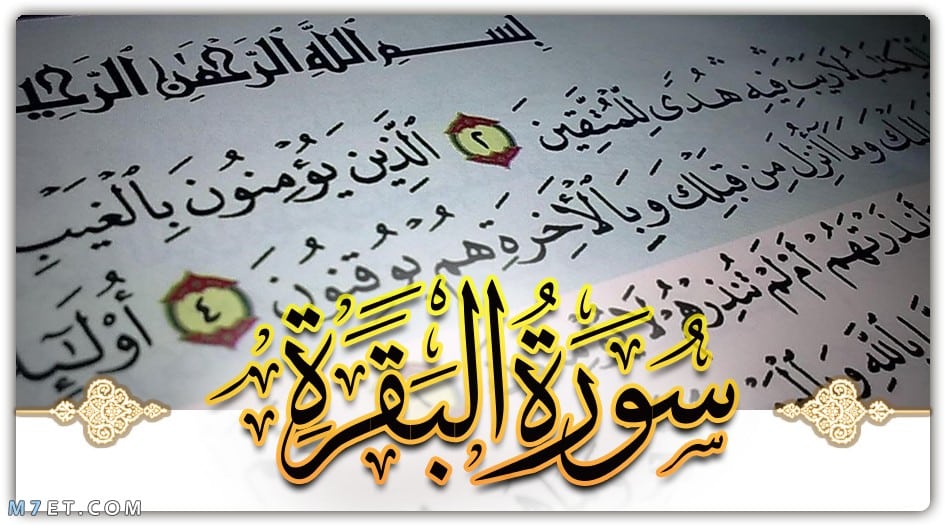 بِسْمِ ٱللَّهِ ٱلرَّحْمَٰنِ ٱلرَّحِيمِ
ٱلْكِتَٰبُ لَا رَيْبَ فِيهِ هُدًى لِّلْمُتَّقِينَ ٢ ٱلَّذِينَ يُؤْمِنُونَ بِٱلْغَيْبِ
وَمَآ أُنزِلَ مِن قَبْلِكَ وَبِٱلْأَخِرَةِ هُمْ يُوقِنُونَ ٤ أُوْلَٰٓئِ
ءَأَنذَرْتَهُمْ أَمْ لَمْ تُنذِرْهُمْ لَا
بِٱللَّهِ
سُورَةُ الْبَقَرَةِ
M7ET.COM